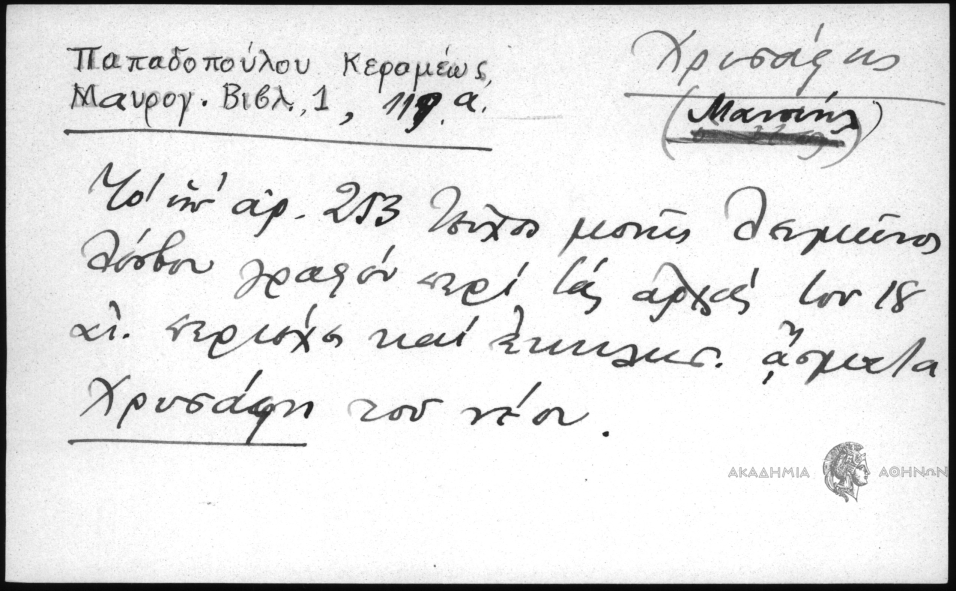 Παπαδοπούλου Κεραμέως,
Μαυρογ. Βιβλ. 1, 119 α.
Χρυσάφης
(Μανουήλ)
Τό ὑπ' ἀρ. 253 τεῦχος μονῆς Λειμῶνος
Λέσβου γραφέν περί τάς ἀρχάς του 18
αἰ. περιέχει καί ἐκκλησ. ᾄσματα
Χρυσάφη του νέου.
ΑΚΑΔΗΜΙΑ ΑΘΗΝΩΝ